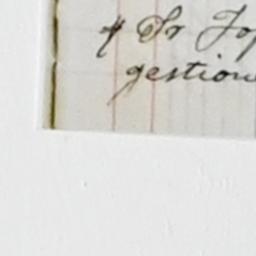 & Sr Jo
gestion